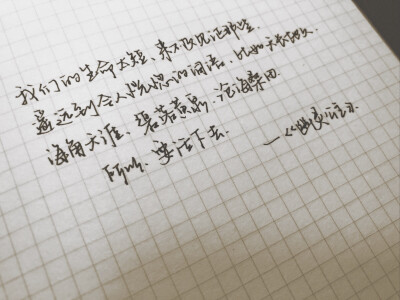 我们的生命太短，来不及见证那些
遥远到令人恍惚的词语，比如天长地久
海角天涯，碧落黄泉，沧海桑田。
所以，要活下去。
——《幽灵